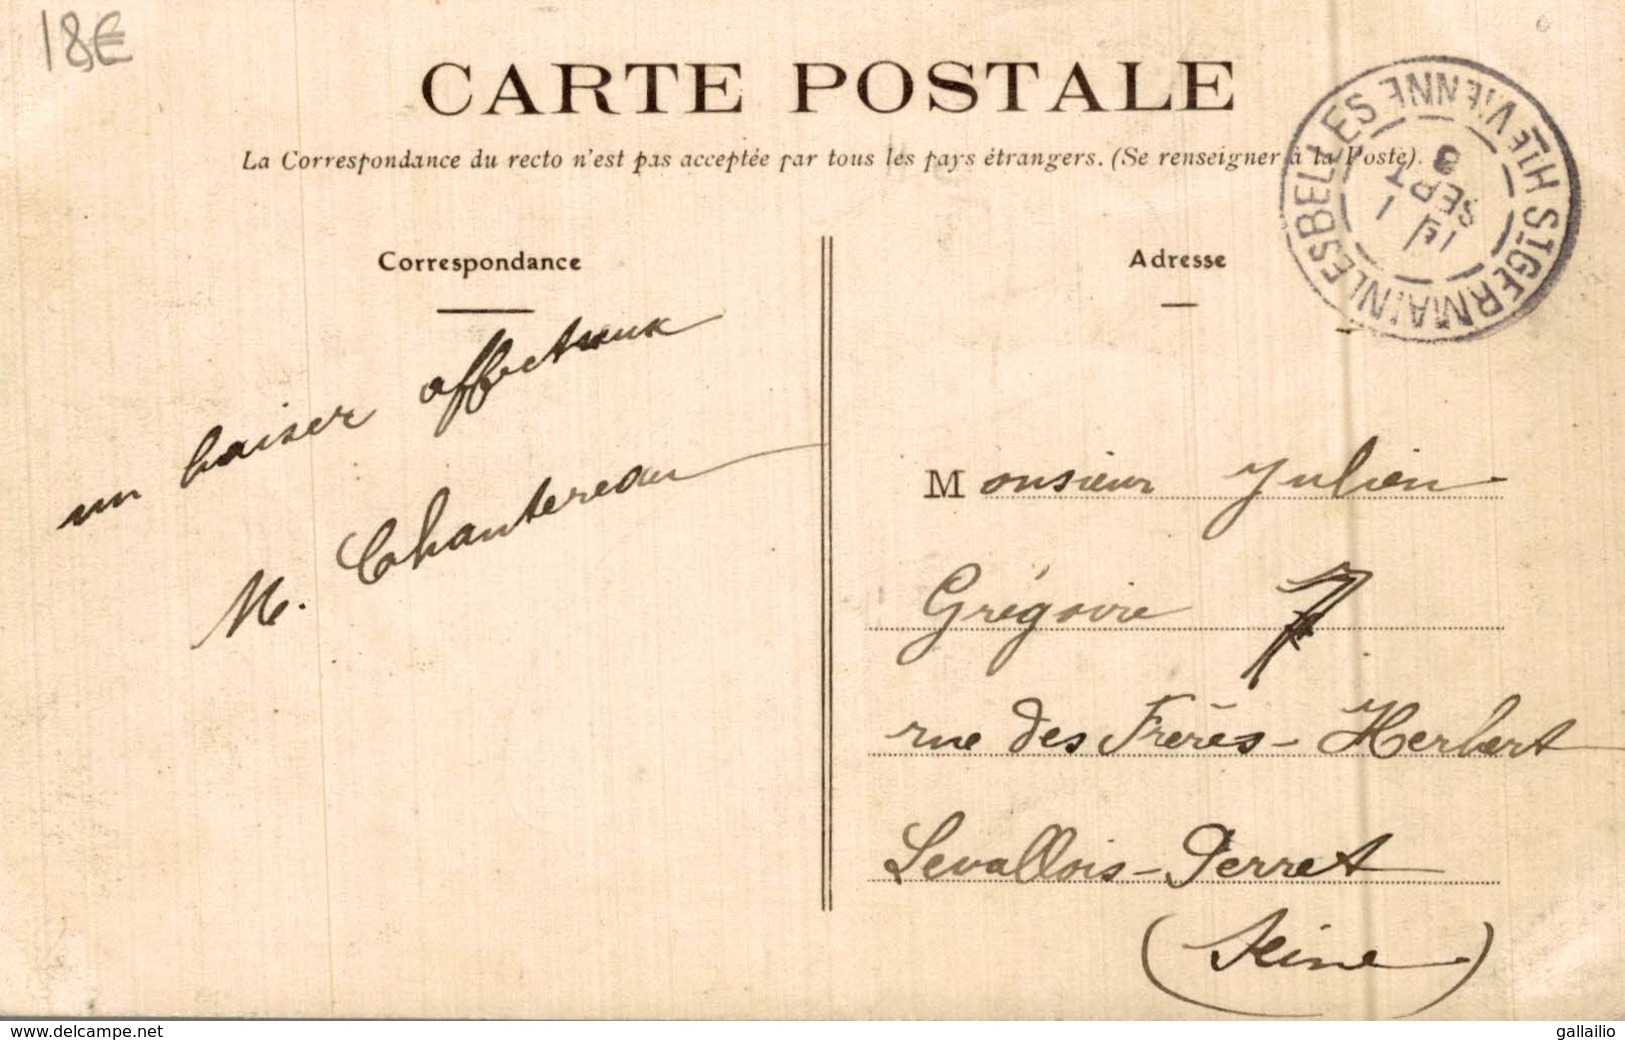 18€
CARTE POSTALE
La Correspondance du recto n'est pas acceptée par tous les pays étrangers. (Se renseigner à la Poste).
Correspondance
un baiser affectueux
M. Chantereau
Adresse
Monsieur Julien
Grégoire 7
rue des Frères-Herbert
Levallois-Perret
(Seine)
ST GERMAIN LES BELLES HTE VIENNE
SEPT
www.delcampe.net
gallailio